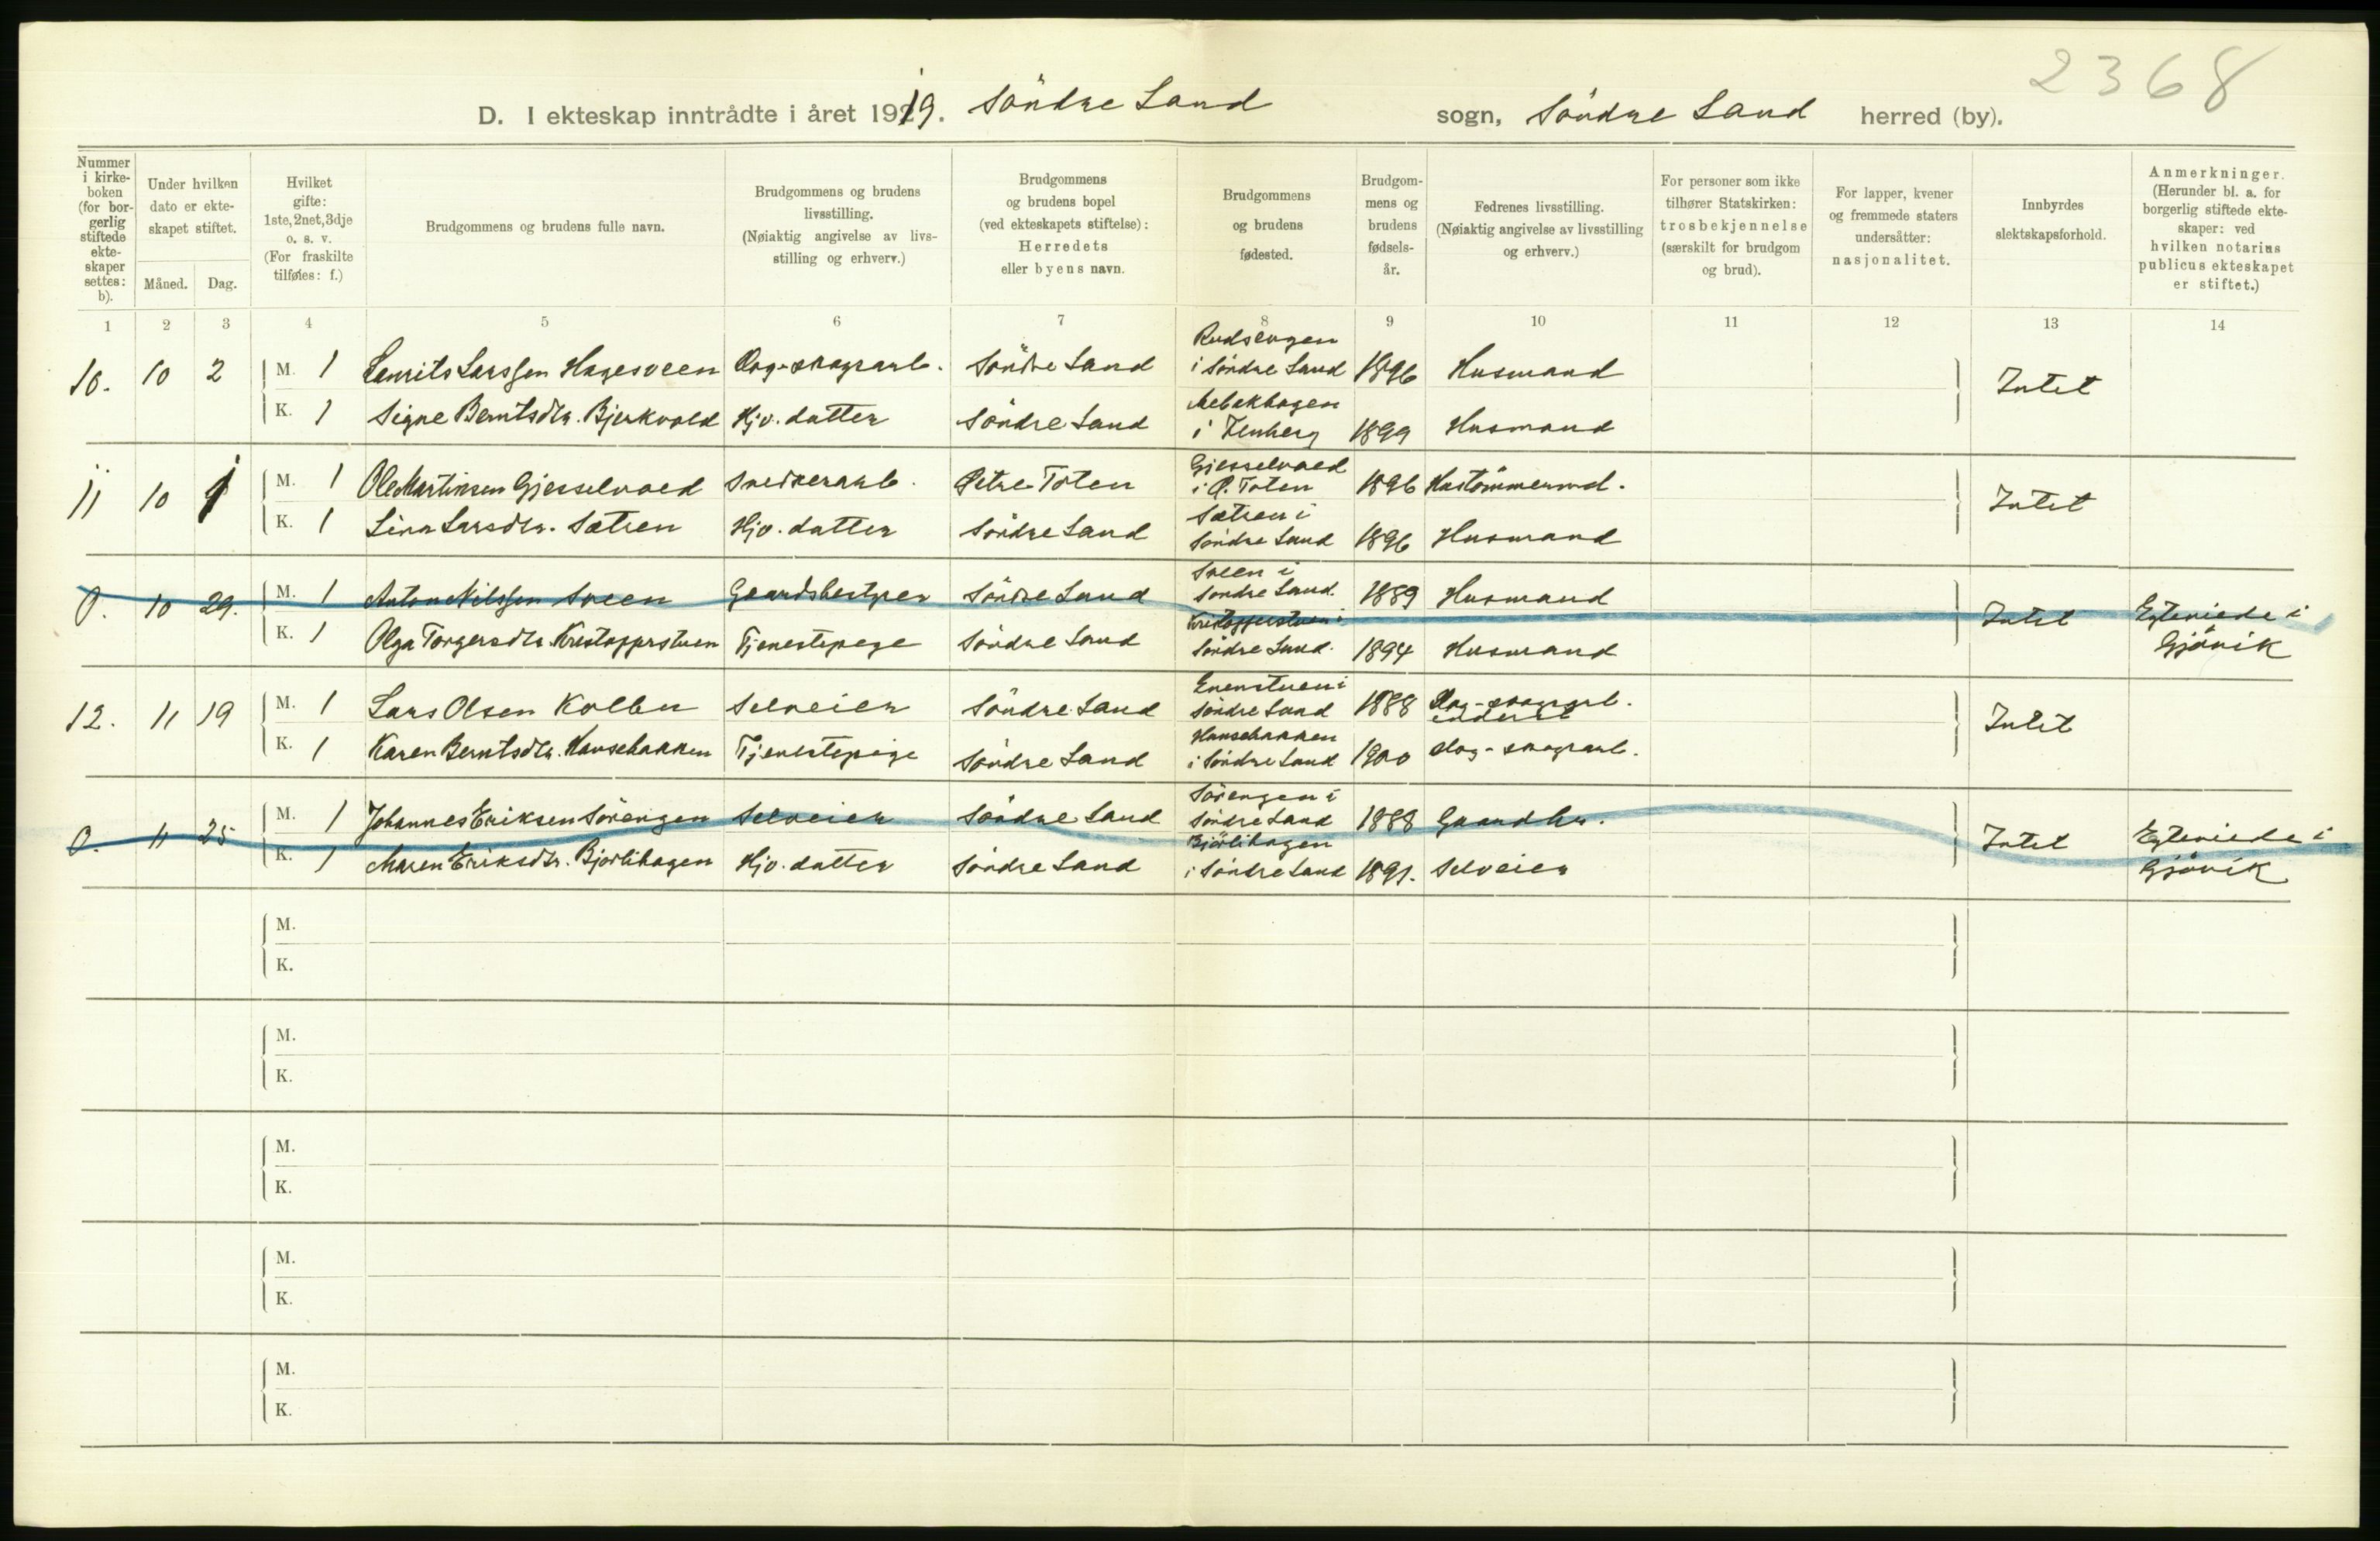 2368
D. I ekteskap inntrådte i året 1919. Söndre Land sogn, Söndre Land herred (by).
Nummer i kirkeboken (for borgerlig stiftede ekteskaper settes: b).
Under hvilken dato er ekteskapet stiftet.
Måned. Dag.
Hvilket gifte: 1ste, 2net, 3dje o. s. v. (For fraskilte tilføies: f.)
Brudgommens og brudens fulle navn.
Brudgommens og brudens livsstilling. (Nøiaktig angivelse av livsstilling og erhverv.)
Brudgommens og brudens bopel (ved ekteskapets stiftelse): Herredets eller byens navn.
Brudgommens og brudens fødested.
Brudgommens og brudens fødselsår.
Fedrenes livsstilling. (Nøiaktig angivelse av livsstilling og erhverv.)
For personer som ikke tilhører Statskirken: trosbekjennelse (særskilt for brudgom og brud).
For lapper, kvener og fremmede staters undersåtter: nasjonalitet.
Innbyrdes slektskapsforhold.
Anmerkninger. (Herunder bl. a. for borgerlig stiftede ekteskaper: ved hvilken notarius publicus ekteskapet er stiftet.)
1 2 3 4 5 6 7 8 9 10 11 12 13 14
10. 10 2 M. 1 Laurits Larssen Hagesveen Dag-skogsarb. Söndre Land Rudsengen i Söndre Land 1896 Husmand Intet
K. 1 Signe Berntsdtr. Bjerkvold Hjv. datter Söndre Land i 1899 Husmand
11 10 M. 1 Ole Martinsen Gjesselvold Snedkerarb. Östre Toten Gjesselvold i Ö. Toten 1896 Hustömmermd. Intet
K. 1 Lina Larsdtr. Sætren Hjv. datter Söndre Land Sætren i Söndre Land 1896 Husmand
0. 10 29. M. 1 Anton Nilssen Sveen Gaardsbestyrer Söndre Land Sveen i Söndre Land 1889 Husmand Intet Egteviede i Gjövik
K. 1 Olga Torgersdtr. Kristoffersstuen Tjenestepige Söndre Land Kristoffersstuen i Söndre Land. 1894 Husmand
12. 11 19 M. 1 Lars Olsen Kolbu Selveier Söndre Land Enenstuen i Söndre Land 1888 Dag-skogsarb. inderst Intet
K. 1 Karen Berntsdtr. Hansebakken Tjenestepige Söndre Land Hansebakken i Söndre Land 1900 Dag-skogsarb.
0. 11 25 M. 1 Johannes Eriksen Sörengen Selveier Söndre Land Sörengen i Söndre Land 1888 Gaardbr. Intet Egteviede i Gjövik
K. 1 Maren Eriksdtr. Bjørlihagen Hjv. datter Söndre Land Björlihagen i Söndre Land 1891. Selveier
M.
K.
M.
K.
M.
K.
M.
K.
M.
K.